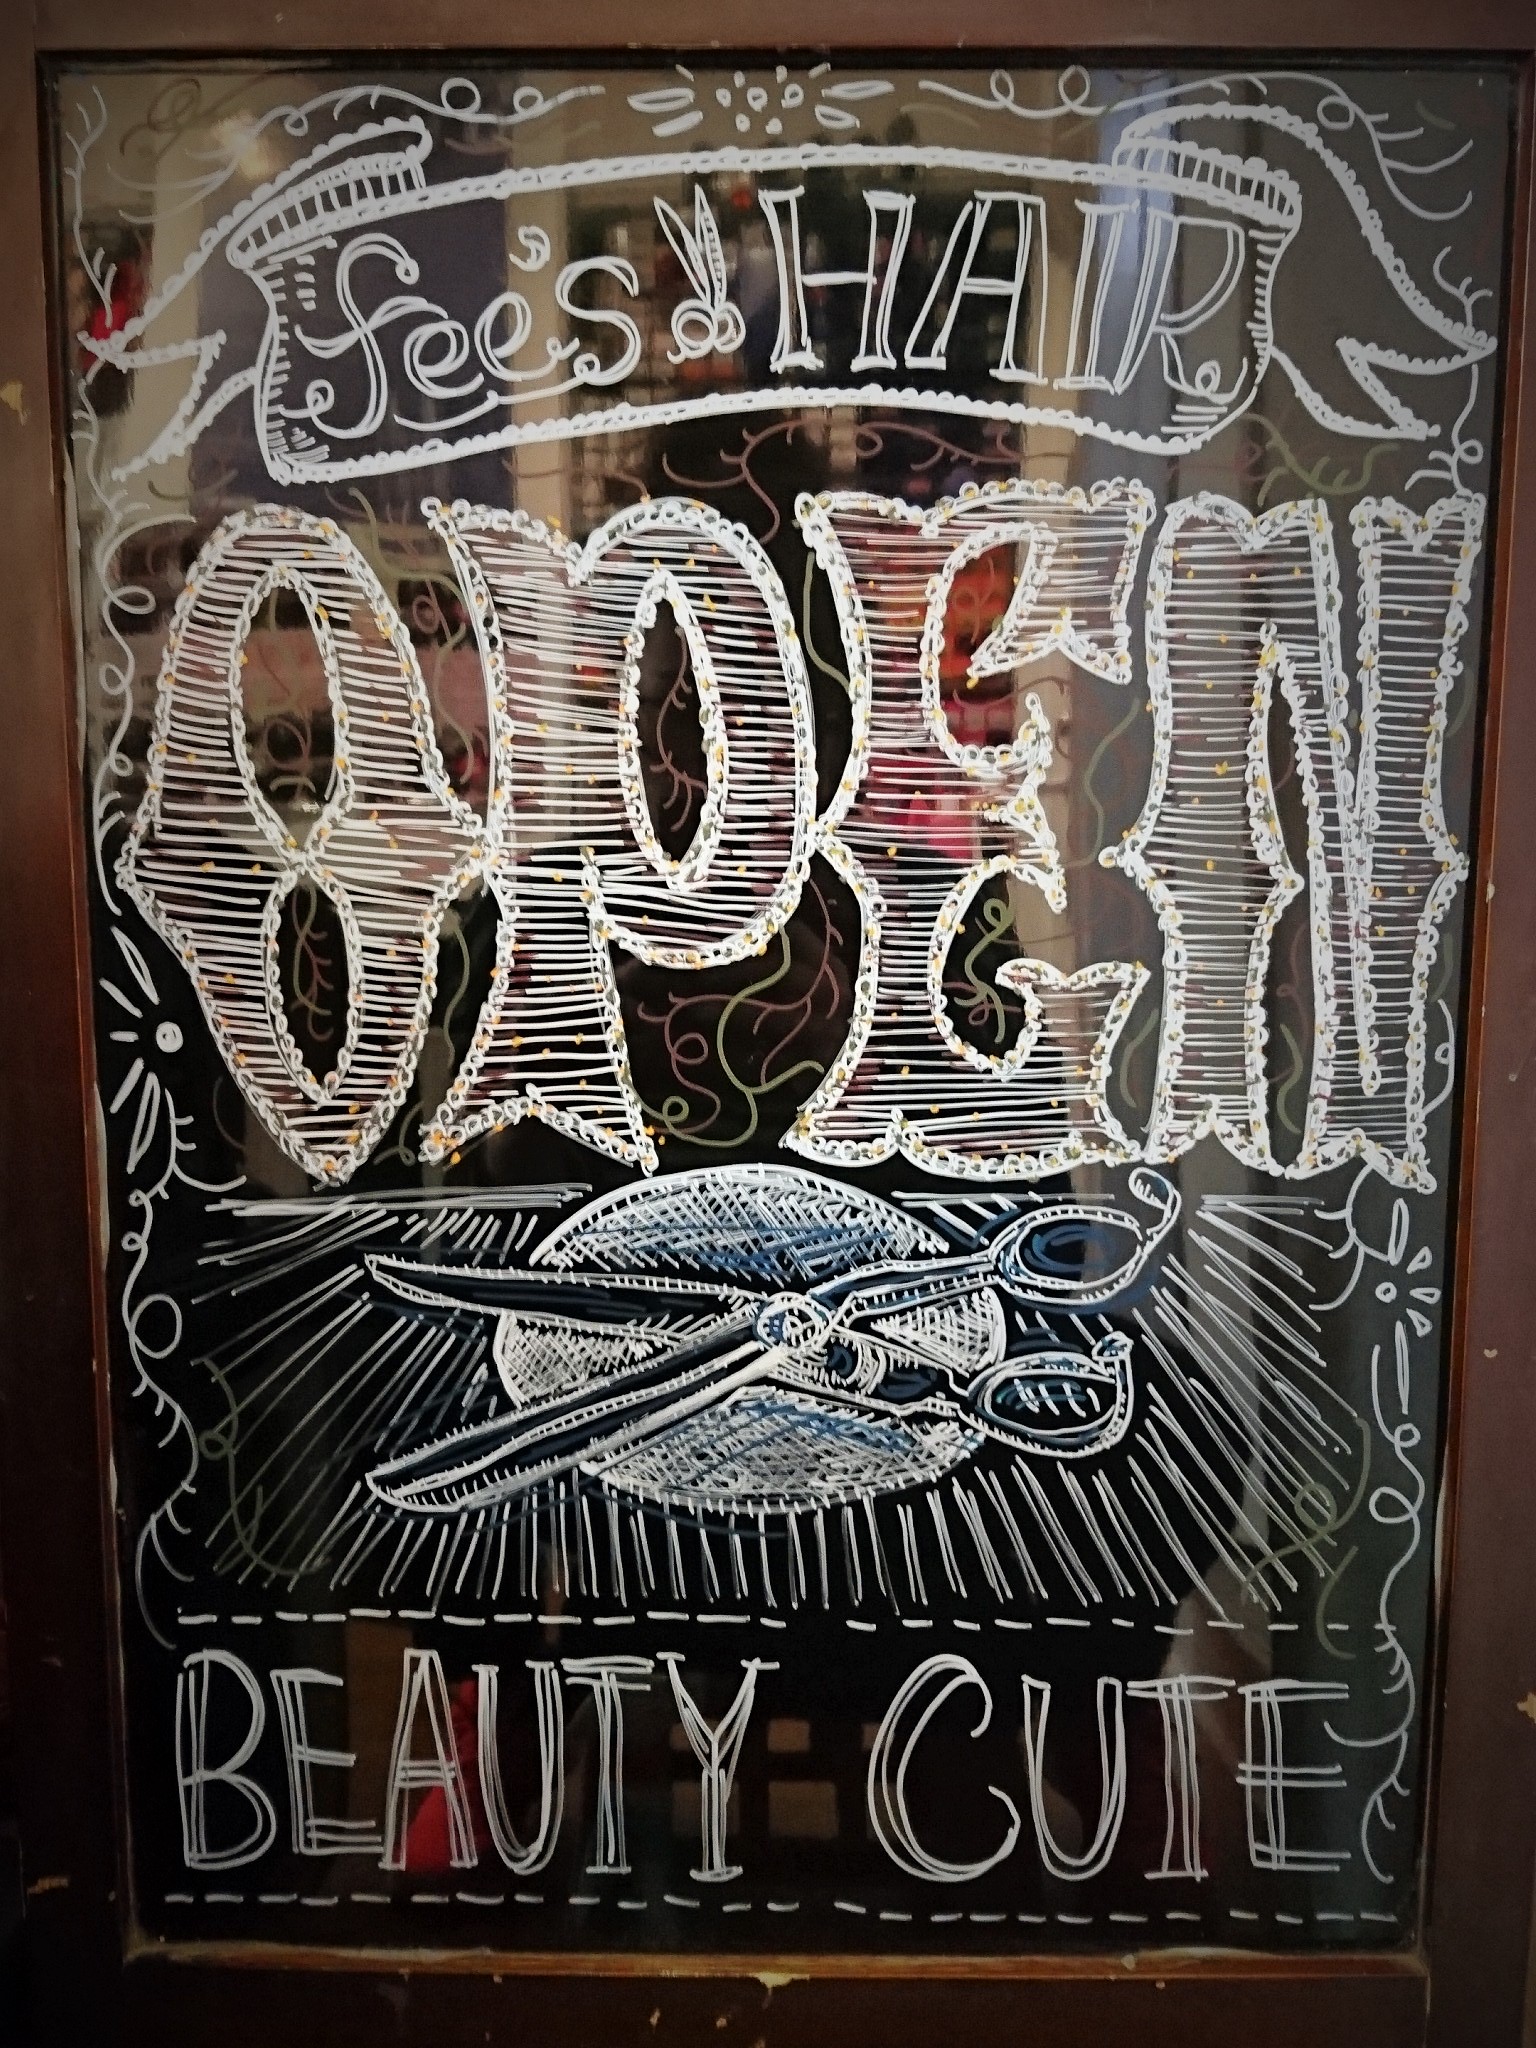 fee's HAIR
OPEN
BEAUTY CUTE